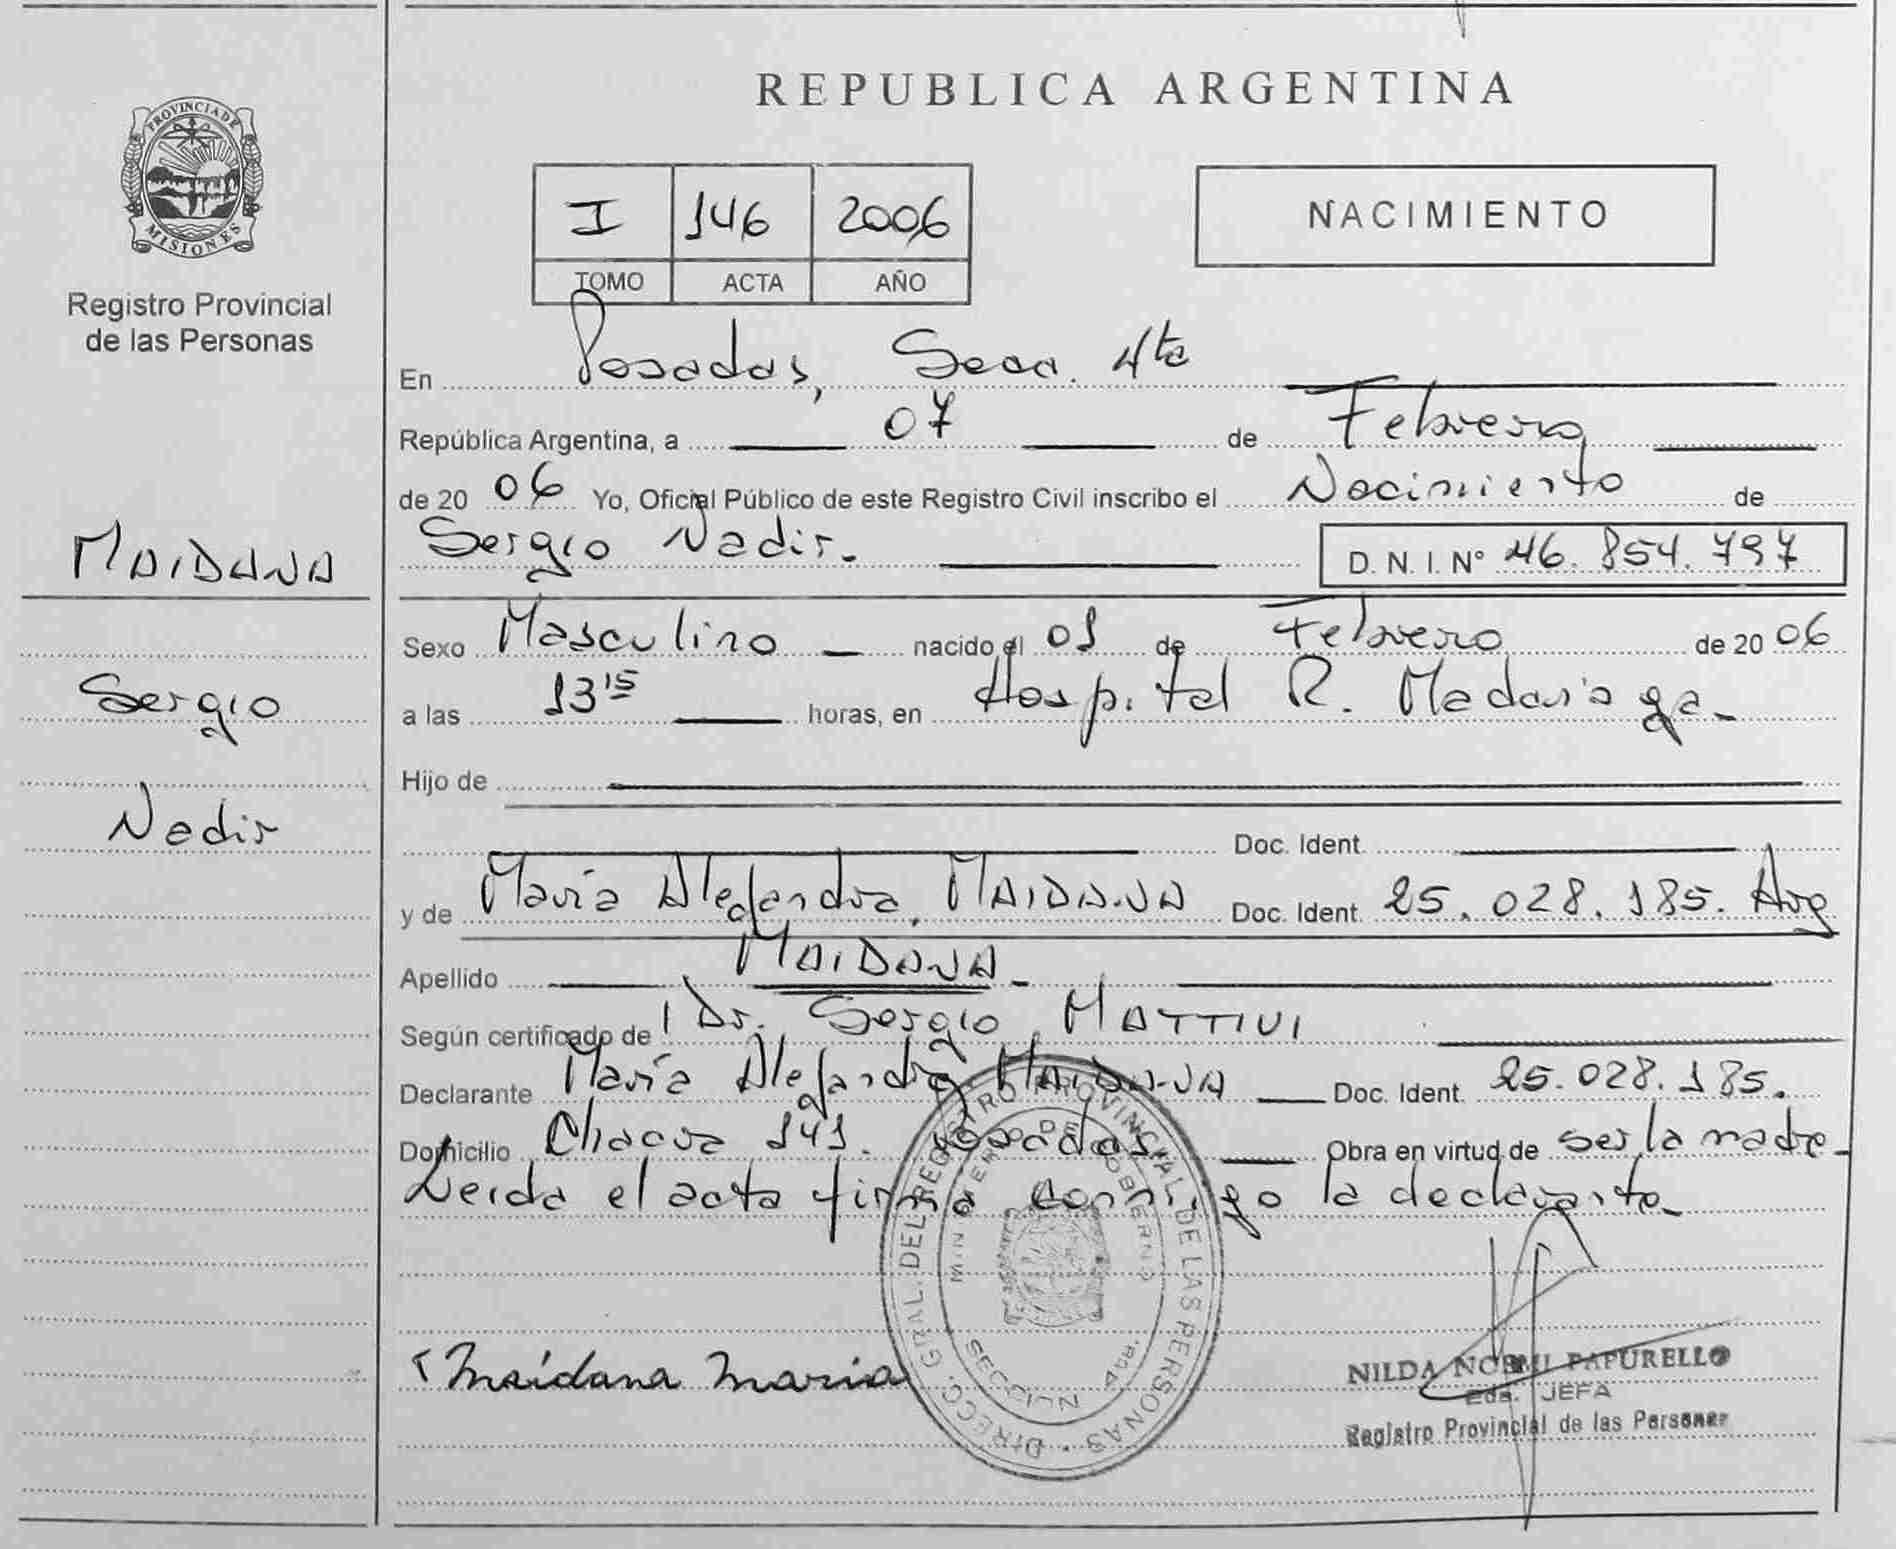 REPUBLICA ARGENTINA
PROVINCIA DE
MISIONES
Registro Provincial
de las Personas
I 146 2006
TOMO ACTA AÑO
NACIMIENTO
En Posadas, Secc. 4ta
República Argentina, a 07 de Febrero
de 20 06 Yo, Oficial Público de este Registro Civil inscribo el Nacimiento de
MAIDANA
Sergio Nadir.
D. N. I. Nº 46. 854. 797
Sexo Masculino nacido el 01 de Febrero de 20 06
Sergio
a las 13 15 horas, en Hospital R. Madariaga
Hijo de
Nadir
Doc. Ident.
y de María Alejandra MAIDANA Doc. Ident. 25. 028. 185. Arg
Apellido MAIDANA
Según certificado de Dr. Sergio MATTIVI
Declarante María Alejandra MAIDANA Doc. Ident. 25. 028. 185.
Domicilio 141. Posadas Obra en virtud de ser la madre
Leida el acta firma conmigo la declarante
DIRECC. GRAL. DEL REGISTRO PROVINCIAL DE LAS PERSONAS
MINISTERIO DE GOBIERNO
SECCION 4
Maidana Maria
NILDA NOEMI PAPURELLO
JEFA
Registro Provincial de las Personas